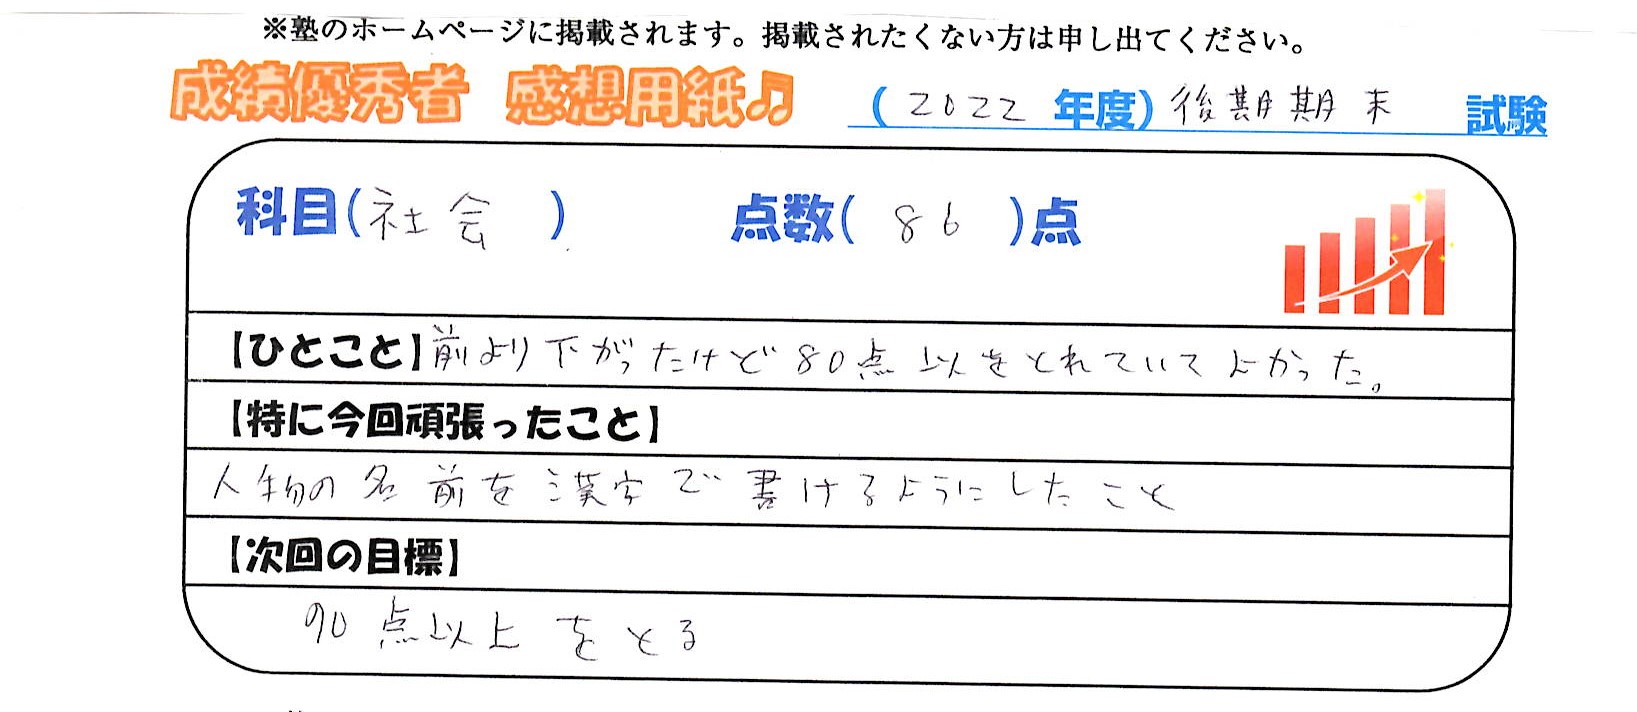 ※塾のホームページに掲載されます。掲載されたくない方は申し出てください。
成績優秀者 感想用紙♫ (2022 年度) 後期期末 試験
科目(社会 ) 点数( 86 )点
【ひとこと】前より下がったけど80点以をとれていてよかった。
【特に今回頑張ったこと】
人物の名前を漢字で書けるようにしたこと
【次回の目標】
90点以上をとる